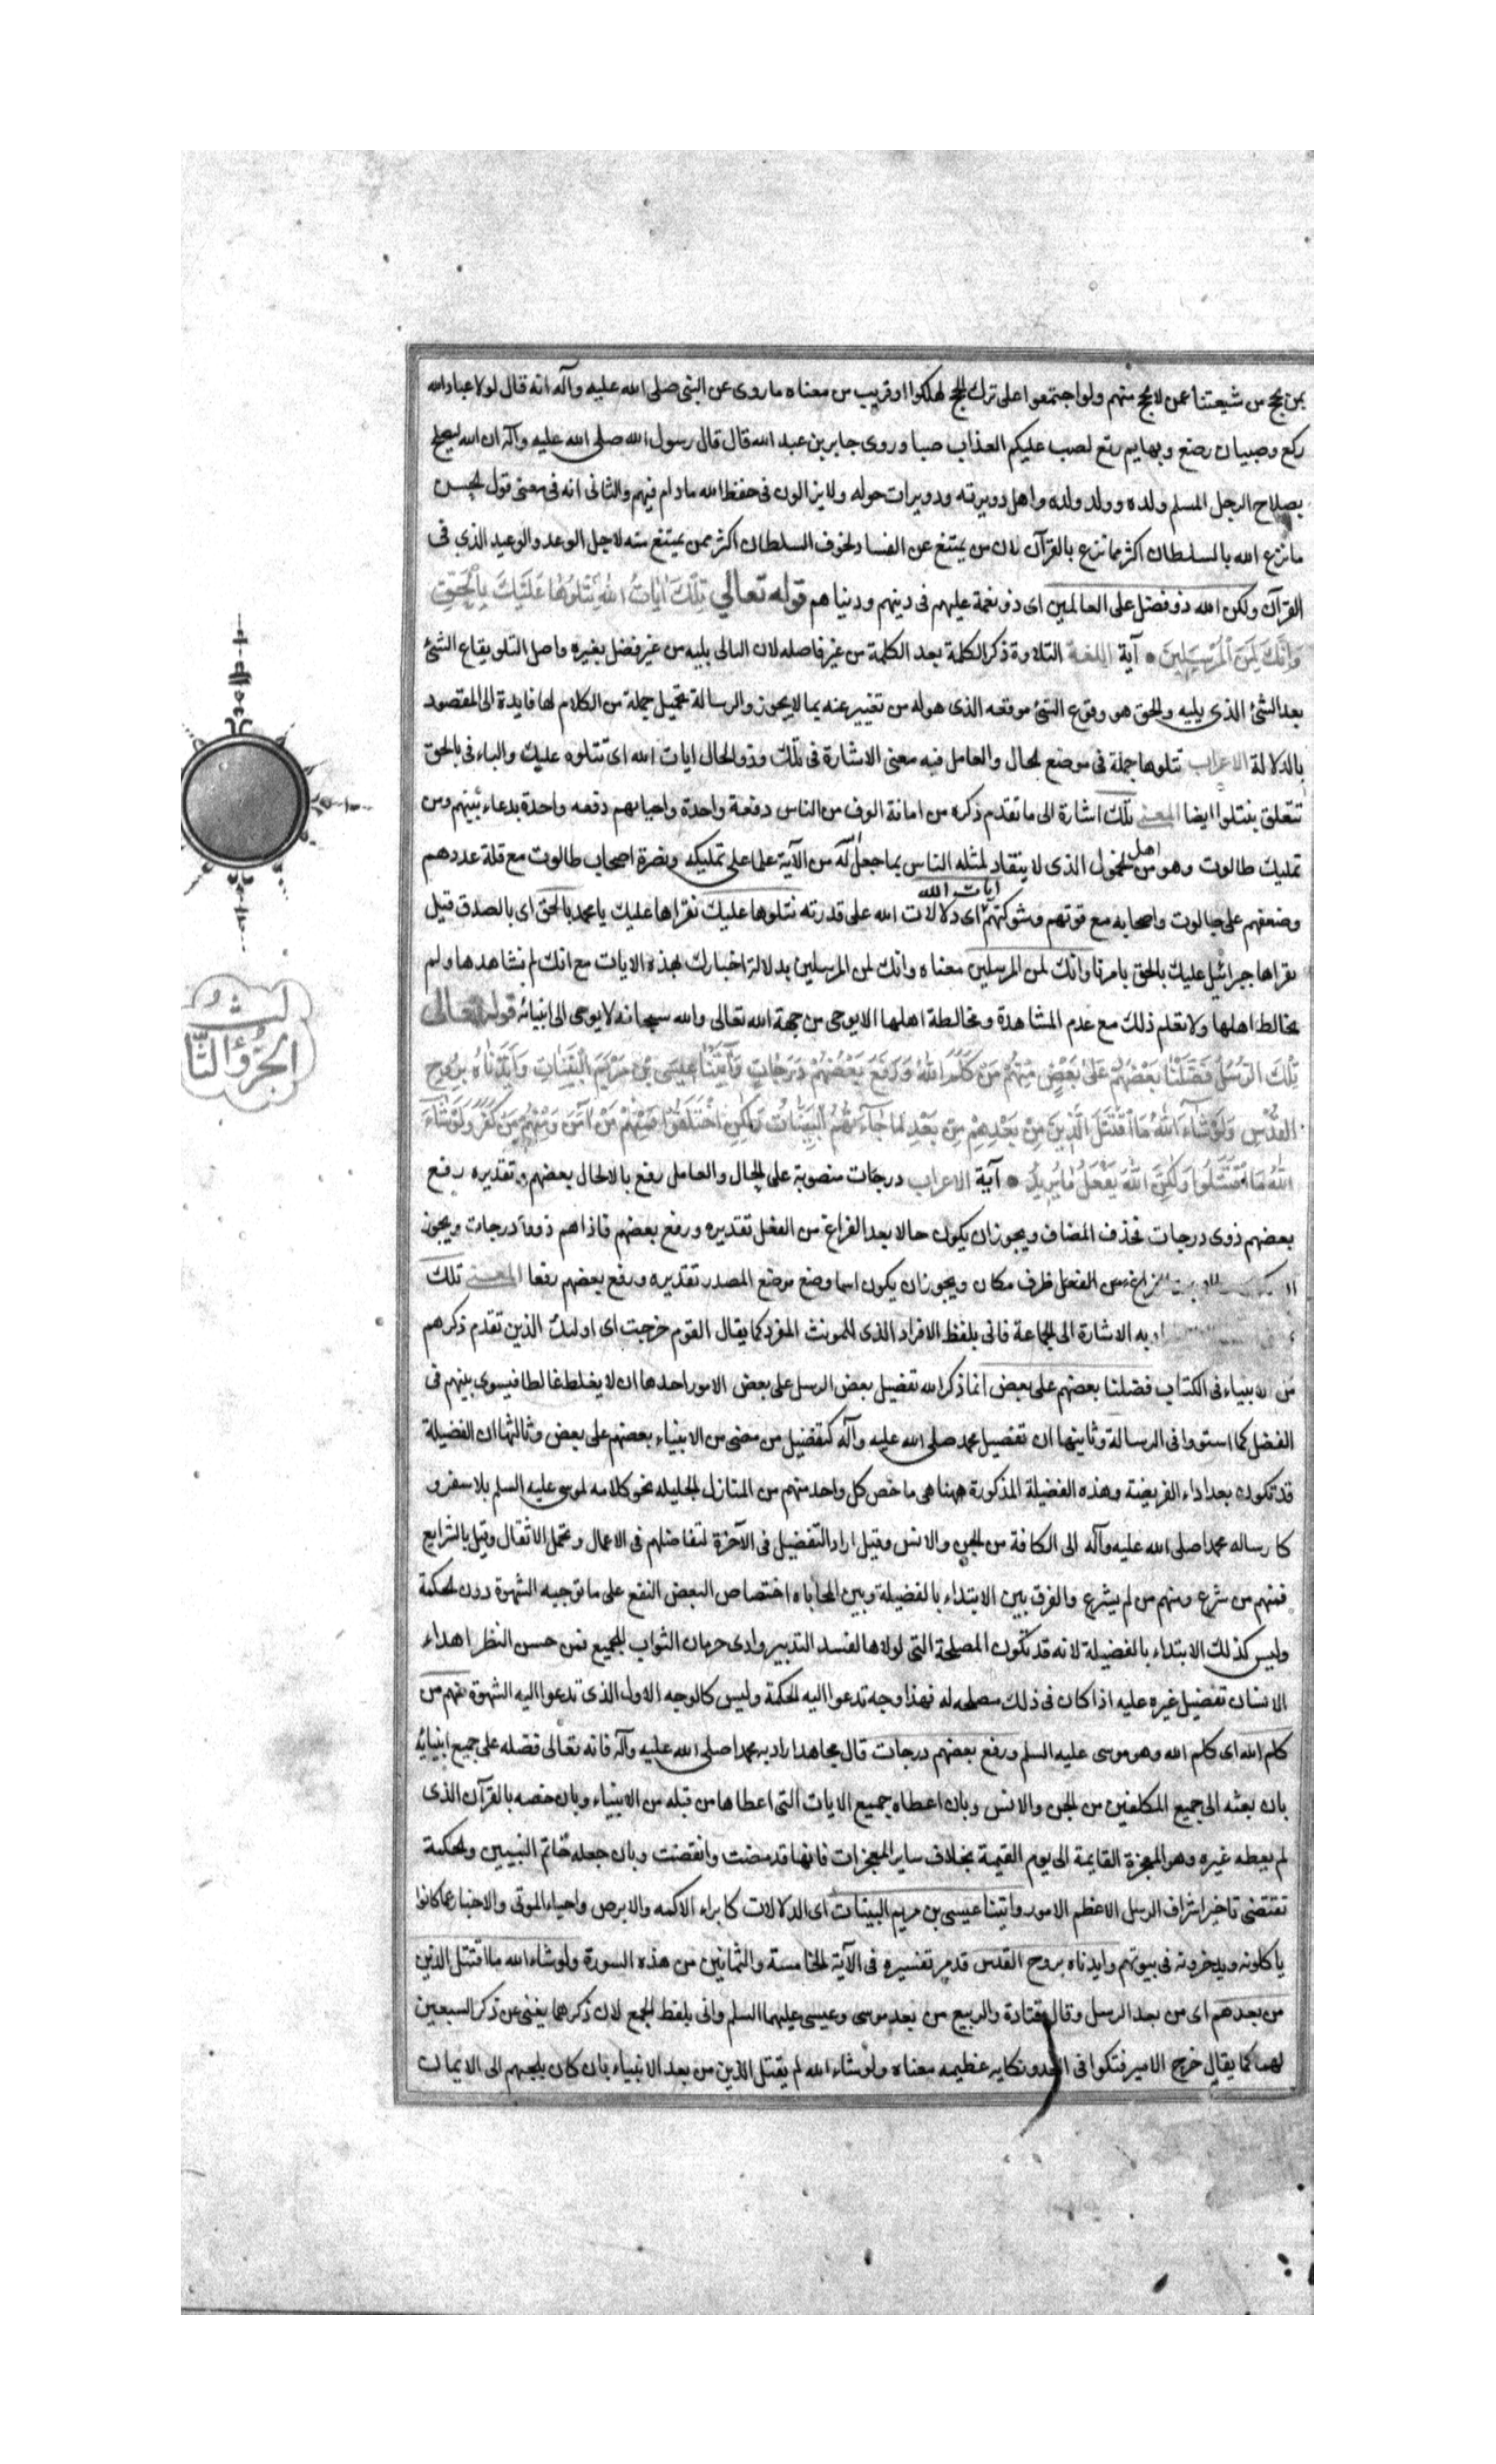 بمن يحج من شيعتنا عمن لا يحج منهم ولو اجتمعوا على ترك الحج لهلكوا وقريب من معناه ما روى عن النبى صلى الله عليه وآله انه قال لولا عباد الله
ركع وصبيان رضع وبهايم رتع لصب عليكم العذاب صبا وروى جابر بن عبد الله قال قال رسول الله صلى الله عليه وآله ان الله ليصلح
بصلاح الرجل المسلم ولده وولد ولده واهل دويرته ودويرات حوله ولا يزالون فى حفظ الله مادام فيهم والثانى انه فى معنى قول الحسن
ما نزع الله بالسلطان اكثر مما نزع بالقرآن لان من يمتنع عن الفساد لخوف السلطان اكثر ممن يمتنع منه لاجل الوعد والوعيد الذي فى
القرآن ولكن الله ذو فضل على العالمين اى ذو نعمة عليهم فى دينهم ودنياهم قوله تعالي تِلْكَ اٰيَاتُ اللهِ نَتْلُوهَا عَلَيْكَ بِالْحَقِّ
وَاِنَّكَ لَمِنَ الْمُرْسَلِينَ آية اللغة التلاوة ذكر الكلمة بعد الكلمة من غير فاصله لان التالى يليه من غير فصل بغيره واصل التلو يقاع الشئ
بعد الشئ الذى يليه والحق هو وقوع الشئ موقعه الذى هو له من تغيير عنه بما لا يجوز والرسالة تحميل جملة من الكلام لها فايدة الى المقصود
بالدلالة الاعراب نتلوها جملة فى موضع الحال والعامل فيه معنى الاشارة فى تلك وذو الحال ايات الله اى نتلوه عليك والباء فى بالحق
تتعلق بنتلوا ايضا المعنى تلك اشارة الى ما تقدم ذكره من اماتة الوف من الناس دفعة واحدة واحياهم دفعه واحدة بدعاء نبيهم ومن
تمليك طالوت وهو من اهل الخمول الذى لا ينقاد لمثله الناس بما جعل له من الآية علما على تمليكه ونصرة اصحاب طالوت مع قلة عددهم
وضعفهم على جالوت واصحابه مع قوتهم وشوكتهم ايات الله اى دلالات الله على قدرته نتلوها عليك نقراها عليك يا محمد بالحق اى بالصدق قيل
يقراها جبرائيل عليك بالحق بامرنا وانك لمن المرسلين معناه وانك لمن المرسلين بدلالة اخبارك بهذه الايات مع انك لم تشاهدها ولم
تخالط اهلها ولا تعلم ذلك مع عدم المشاهدة ومخالطة اهلها الا بوحى من جهة الله تعالى والله سبحانه لا يوحى الى انبيائه قوله تعالى
تِلْكَ الرُّسُلُ فَضَّلْنَا بَعْضَهُمْ عَلَىٰ بَعْضٍ مِنْهُمْ مَنْ كَلَّمَ اللهُ وَرَفَعَ بَعْضَهُمْ دَرَجَاتٍ وَآتَيْنَا عِيسَى بْنَ مَرْيَمَ الْبَيِّنَاتِ وَاَيَّدْنَاهُ بِرُوحِ
الْقُدُسِ وَلَوْ شَاءَ اللهُ مَا اقْتَتَلَ الَّذِينَ مِنْ بَعْدِهِمْ مِنْ بَعْدِ مَا جَاءَتْهُمُ الْبَيِّنَاتُ وَلٰكِنِ اخْتَلَفُوا فَمِنْهُمْ مَنْ آمَنَ وَمِنْهُمْ مَنْ كَفَرَ وَلَوْ شَاءَ
اللهُ مَا اقْتَتَلُوا وَلٰكِنَّ اللهَ يَفْعَلُ مَا يُرِيدُ آية الاعراب درجات منصوبة على الحال والعامل رفع بالا لحال بعضهم وتقديره رفع
بعضهم ذوى درجات فحذف المضاف ويجوز ان يكون حالا بعد الفراغ من الفعل تقديره ورفع بعضهم فاذا هم ذووا درجات ويجوز
من الفعل ظرف مكان ويجوز ان يكون اسما وضع موضع المصدر تقديره ورفع بعضهم رفعا المعنى تلك
به الاشارة الى الجماعة فاتى بلفظ الافراد الذى للمونث المفرد كما يقال القوم خرجت اى اوليك الذين تقدم ذكرهم
من الانبياء فى الكتاب فضلنا بعضهم على بعض انما ذكر الله تفضيل بعض الرسل على بعض الامور احدها ان لا يغلط غالط فيسوى بينهم فى
الفضل كما استووا فى الرسالة وثانيها ان تفضيل محمد صلى الله عليه وآله كتفضيل من مضى من الانبياء بعضهم على بعض وثالثها ان الفضيلة
قد تكون بعد اداء الفريضة وهذه الفضيلة المذكورة ههنا هى ما خص كل واحد منهم من المنازل الجليله نحو كلامه لموسى عليه السلم بلا سفر و
كا رساله محمد صلى الله عليه وآله الى الكافة من الجن والانس وقيل اراد التفضيل فى الآخرة لتفاضلهم فى الاعمال وتحمل الاثقال وقيل بالشرايع
فمنهم من شرع ومنهم من لم يشرع والفرق بين الابتداء بالفضيلة وبين المحاباه اختصاص البعض النفع على ما توجبه الشهوة دون الحكمة
وليس كذلك الابتداء بالفضيلة لانه قد تكون المصلحة التى لولاها لفسد التدبير وادى حرمان الثواب للجميع فمن حسن النظر اهداء
الانسان تفضيل غيره عليه اذا كان فى ذلك مصلحه له فهذا وجه تدعوا اليه الحكمة وليس كالوجه الاول الذى تدعوا اليه الشهوة منهم من
كلم الله اى كلم الله وهو موسى عليه السلم ورفع بعضهم درجات قال مجاهد اراد به محمدا صلى الله عليه وآله فانه تعالى فضله على جميع انبيائه
بان بعثه الى جميع المكلفين من الجن والانس وبان اعطاه جميع الايات التى اعطاها من قبله من الانبياء وبان خصه بالقرآن الذى
لم يعطه غيره وهو المعجزة القايمة الى يوم القيمة بخلاف ساير المعجزات فانها قد مضت وانقضت وبان جعله خاتم النبيين والحكمة
تقتضى تاخير اشراف الرسل الاعظم الامور واتينا عيسى بن مريم البينات اى الدلالات كابراء الاكمه والابرص واحياء الموتى والاخبار عما كانوا
ياكلونه ويدخرونه فى بيوتهم وايدناه بروح القدس قد مر تفسيره فى الآية الخامسة والثمانين من هذه السورة ولو شاء الله ما اقتتل الذين
من بعدهم اى من بعد الرسل وقال قتادة والربيع من بعد موسى وعيسى عليهما السلم واتى بلفظ الجمع لان ذكرهما يغنى عن ذكر السبعين
لهما كما يقال خرج الامير فنكوا فى العدو نكايه عظيمه معناه ولو شاء الله لم يقتتل الذين من بعد الانبياء بان كان يلجئهم الى الايمان
الجُزْؤُ الثَّا
لث